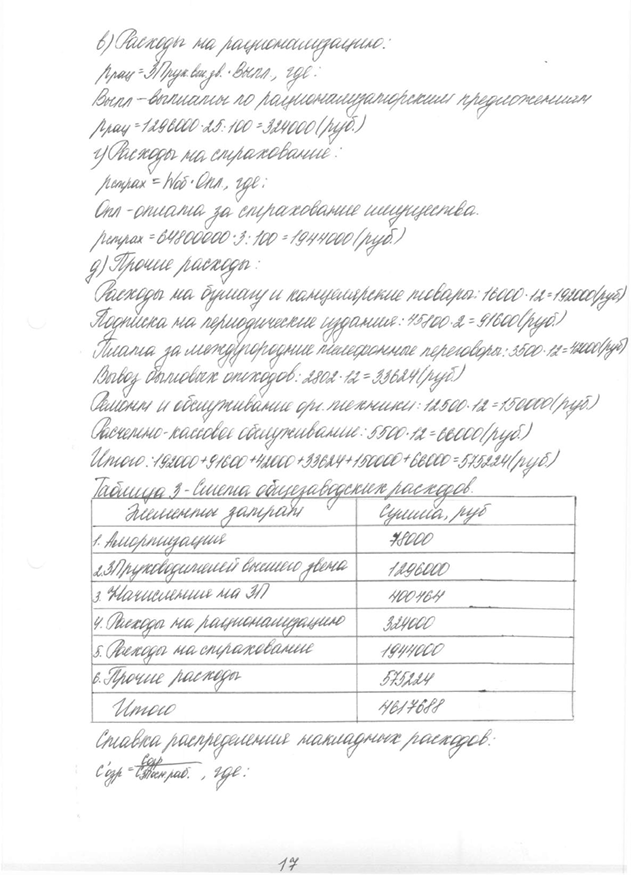 в) Расходы на рационализацию:
Ррац = ЗПрук.выс.зв. · Выпл, где:
Выпл - выплаты по рационализаторским предложениям
Ррац = 1296000 · 25 : 100 = 324000 (руб.)
г) Расходы на страхование:
Рстрах = Wоб · Опл, где:
Опл - оплата за страхование имущества.
Рстрах = 64800000 · 3 : 100 = 1944000 (руб.)
д) Прочие расходы:
Расходы на бумагу и канцелярские товары: 16000 · 12 = 192000 (руб.)
Подписка на периодические издания: 45100 · 2 = 91600 (руб.)
Плата за междугородние телефонные переговоры: 3500 · 12 = 42000 (руб)
Вывоз бытовых отходов: 2802 · 12 = 33624 (руб.)
Ремонт и обслуживание орг. техники: 12500 · 12 = 150000 (руб.)
Расчетно-кассовое обслуживание: 5500 · 12 = 66000 (руб.)
Итого: 192000 + 91600 + 42000 + 33624 + 150000 + 66000 = 575224 (руб)
Таблица 3 - Смета общезаводских расходов.
Элементы затрат Сумма, руб
1. Амортизация 78000
2. ЗП руководителей высшего звена 1296000
3. Начисления на ЗП 400464
4. Расходы на рационализацию 324000
5. Расходы на страхование 1944000
6. Прочие расходы 575224
Итого 4617688
Ставка распределения накладных расходов:
С'озр = Созр / СЗПосн.раб. , где:
17